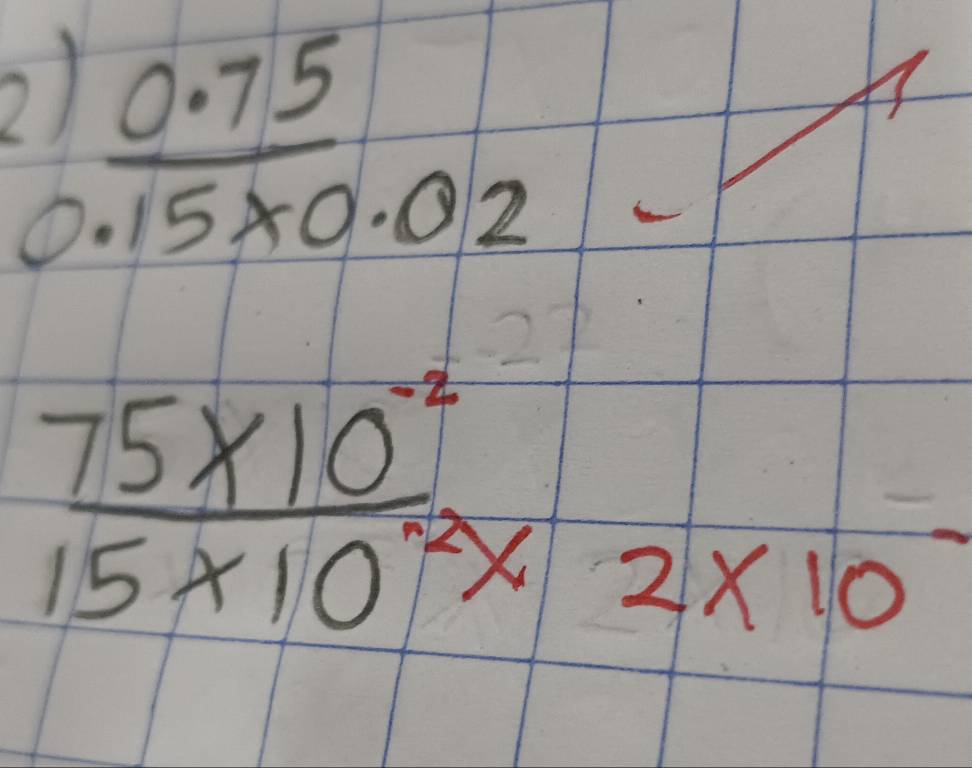 2) 0.75
0.15x0.02
75x10⁻²
15x10⁻² x 2x10⁻